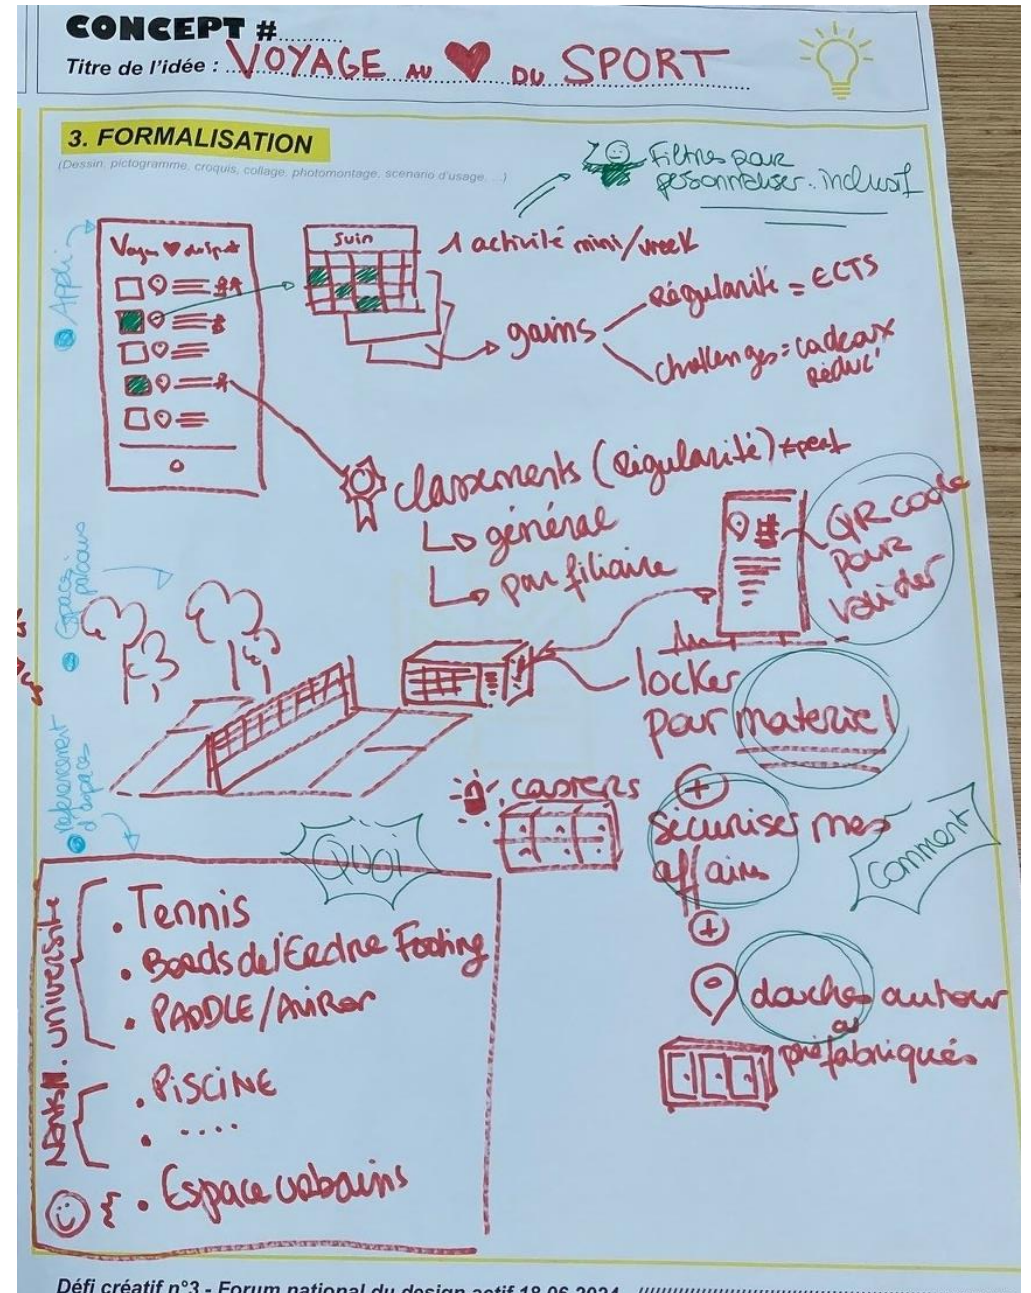 CONCEPT #..........
Titre de l'idée : VOYAGE AU ♥ DU SPORT
3. FORMALISATION
(Dessin, pictogramme, croquis, collage, photomontage, scenario d'usage, ...)
Filtres pour
personnaliser. inclusif
Appli
Voyage ♥ du Sport
Juin
1 activité mini/week
gains
régularité = ECTS
challenges = cadeaux
réduc'
classements (régularité)
↳ général
↳ par filiaire
QR code
pour
valider
Espaces
parcours
locker
pour materiel
referencement
d'espace
casiers
+
sécuriser mes
affaires
comment
QUOI
+
université
. Tennis
. Bords de l'Erdre Footing
. PADDLE/AViRon
douches autour
ou
préfabriqués
Nantes
. PiSCiNE
. ....
. Espace urbains
Défi créatif n°3 - Forum national du design actif 18.06.2024